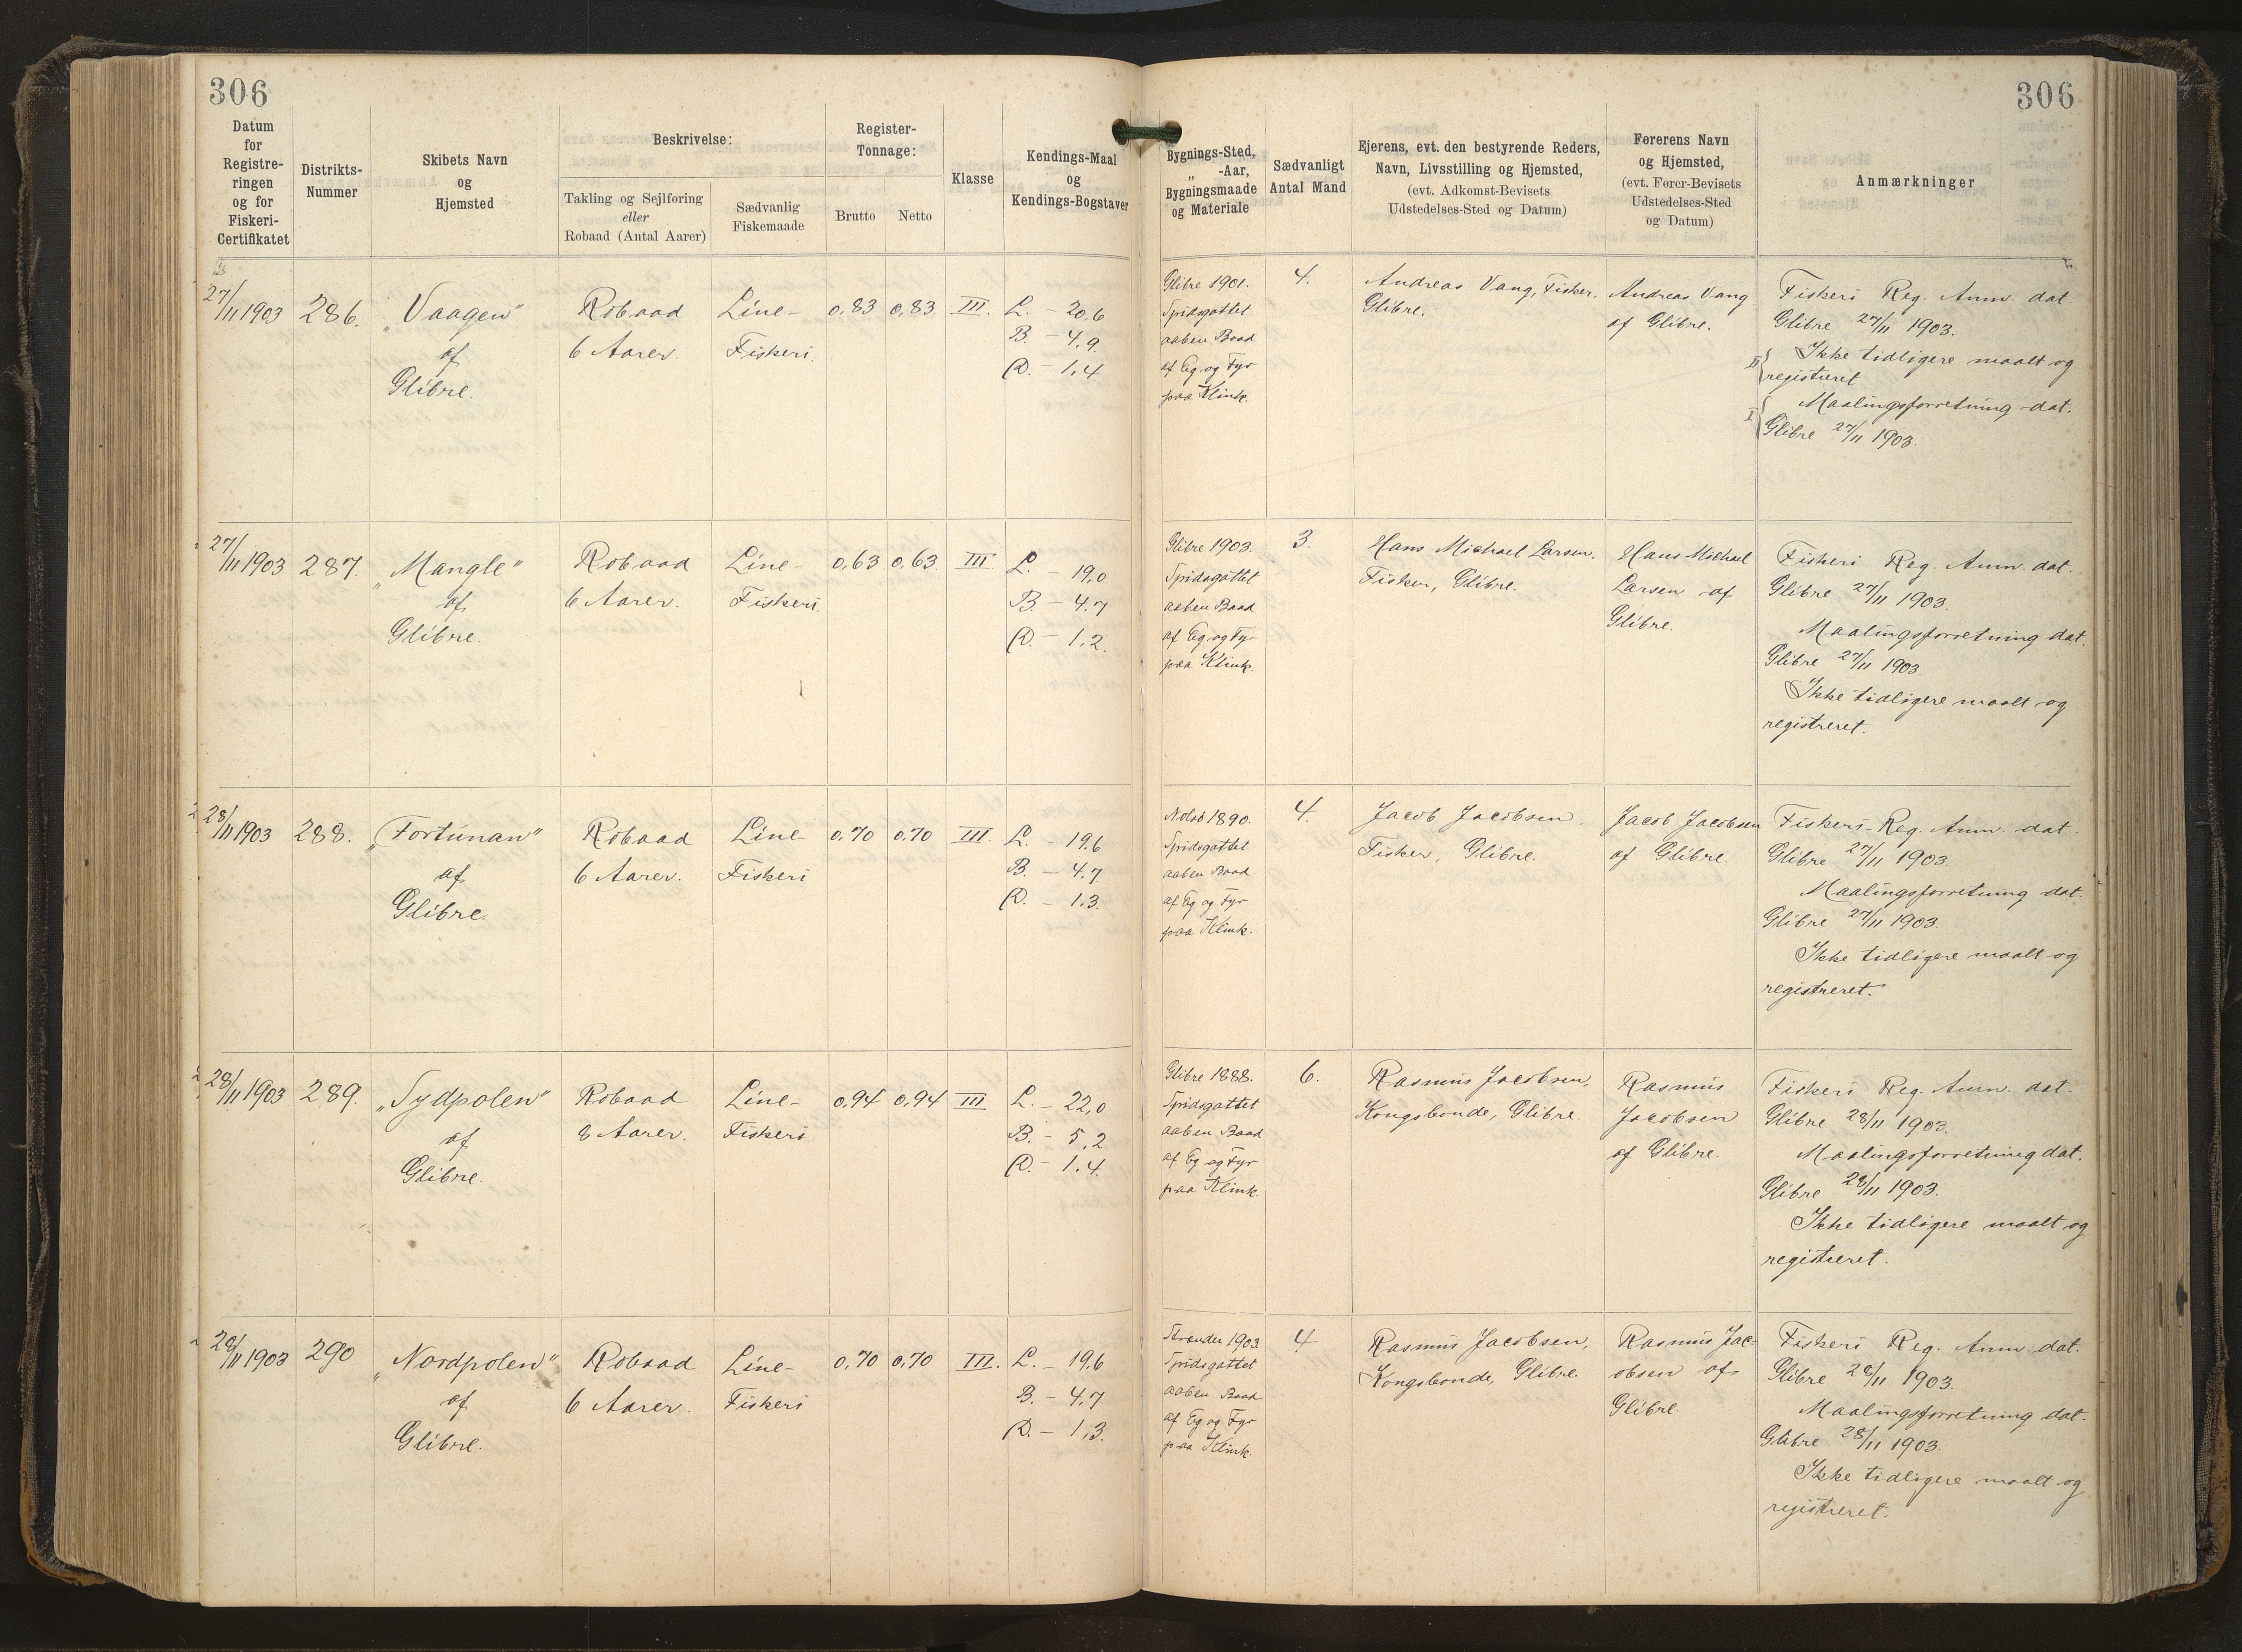 306
306
Datum
for
Registre-
ringen
og for
Fiskeri-
Certifikatet
Distrikts-
Nummer
Skibets Navn
og
Hjemsted
Beskrivelse:
Takling og Sejlføring
eller
Robaad (Antal Aarer)
Sædvanlig
Fiskemaade
Register-
Tonnage:
Brutto
Netto
Klasse
Kendings-Maal
og
Kendings-Bogstaver
Bygnings-Sted,
„ -Aar,
Bygningsmaade
og Materiale
Sædvanligt
Antal Mand
Ejerens, evt. den bestyrende Reders,
Navn, Livsstilling og Hjemsted,
(evt. Adkomst-Bevisets
Udstedelses-Sted og Datum)
Førerens Navn
og Hjemsted,
(evt. Fører-Bevisets
Udstedelses-Sted
og Datum)
Anmærkninger
27/11 1903
286.
„Vaagen"
af
Glibre.
Robaad
6 Aarer.
Line-
Fiskeri.
0,83
0,83
III.
L. - 20,6
B. - 4,9
D. - 1,4
Glibre 1901.
Spidsgattet
aaben Baad
af Eg og Fyr
paa Klink.
4.
Andreas Vang, Fisker,
Glibre.
Andreas Vang
af Glibre.
Fiskeri Reg. Anm. dat.
Glibre 27/11 1903.
II { Ikke tidligere maalt og
registreret
I { Maalingsforretning dat.
Glibre 27/11 1903.
27/11 1903
287.
„Mangle"
af
Glibre.
Robaad
6 Aarer.
Line-
Fiskeri
0,63
0,63
III
L. - 19,0
B. - 4,7
D. - 1,2
Glibre 1903.
Spidsgattet
aaben Baad
af Eg og Fyr
paa Klink.
3.
Hans Michael Larsen,
Fisker, Glibre.
Hans Michael
Larsen af
Glibre.
Fiskeri Reg. Anm. dat.
Glibre 27/11 1903.
Maalingsforretning dat.
Glibre 27/11 1903.
Ikke tidligere maalt og
registreret.
28/11 1903
288.
„Fortunan"
af
Glibre.
Robaad
6 Aarer.
Line-
Fiskeri
0,70
0,70
III.
L. - 19,6
B. - 4,7
D. - 1,3.
Nolsö 1890.
Spidsgattet
aaben Baad
af Eg og Fyr
paa Klink.
4.
Jacob Jacobsen
Fisker, Glibre.
Jacob Jacobsen
af Glibre.
Fiskeri-Reg. Anm. dat.
Glibre 27/11 1903.
Maalingsforretning dat.
Glibre 27/11 1903.
Ikke tidligere maalt og
registreret.
28/11 1903
289.
„Sydpolen"
af
Glibre.
Robaad
8 Aarer.
Line-
Fiskeri
0,94
0,94
III
L. - 22,0
B. - 5,2
D. - 1,4.
Glibre 1888.
Spidsgattet
aaben Baad
af Eg og Fyr
paa Klink.
6.
Rasmus Jacobsen,
Kongsbonde, Glibre.
Rasmus
Jacobsen
af Glibre.
Fiskeri Reg. Anm. dat.
Glibre 28/11 1903.
Maalingsforretning dat.
Glibre 28/11 1903.
Ikke tidligere maalt og
registreret.
28/11 1903
290
„Nordpolen"
af
Glibre.
Robaad
6 Aarer.
Line-
Fiskeri
0,70
0,70
III.
L. - 19,6
B. - 4,7
D. - 1,3.
Strander 1903
Spidsgattet
aaben Baad
af Eg og Fyr
paa Klink.
4
Rasmus Jacobsen,
Kongsbonde, Glibre.
Rasmus Jac-
obsen af
Glibre.
Fiskeri Reg. Anm. dat.
Glibre 28/11 1903.
Maalingsforretning dat.
Glibre 28/11 1903.
Ikke tidligere maalt og
registreret.